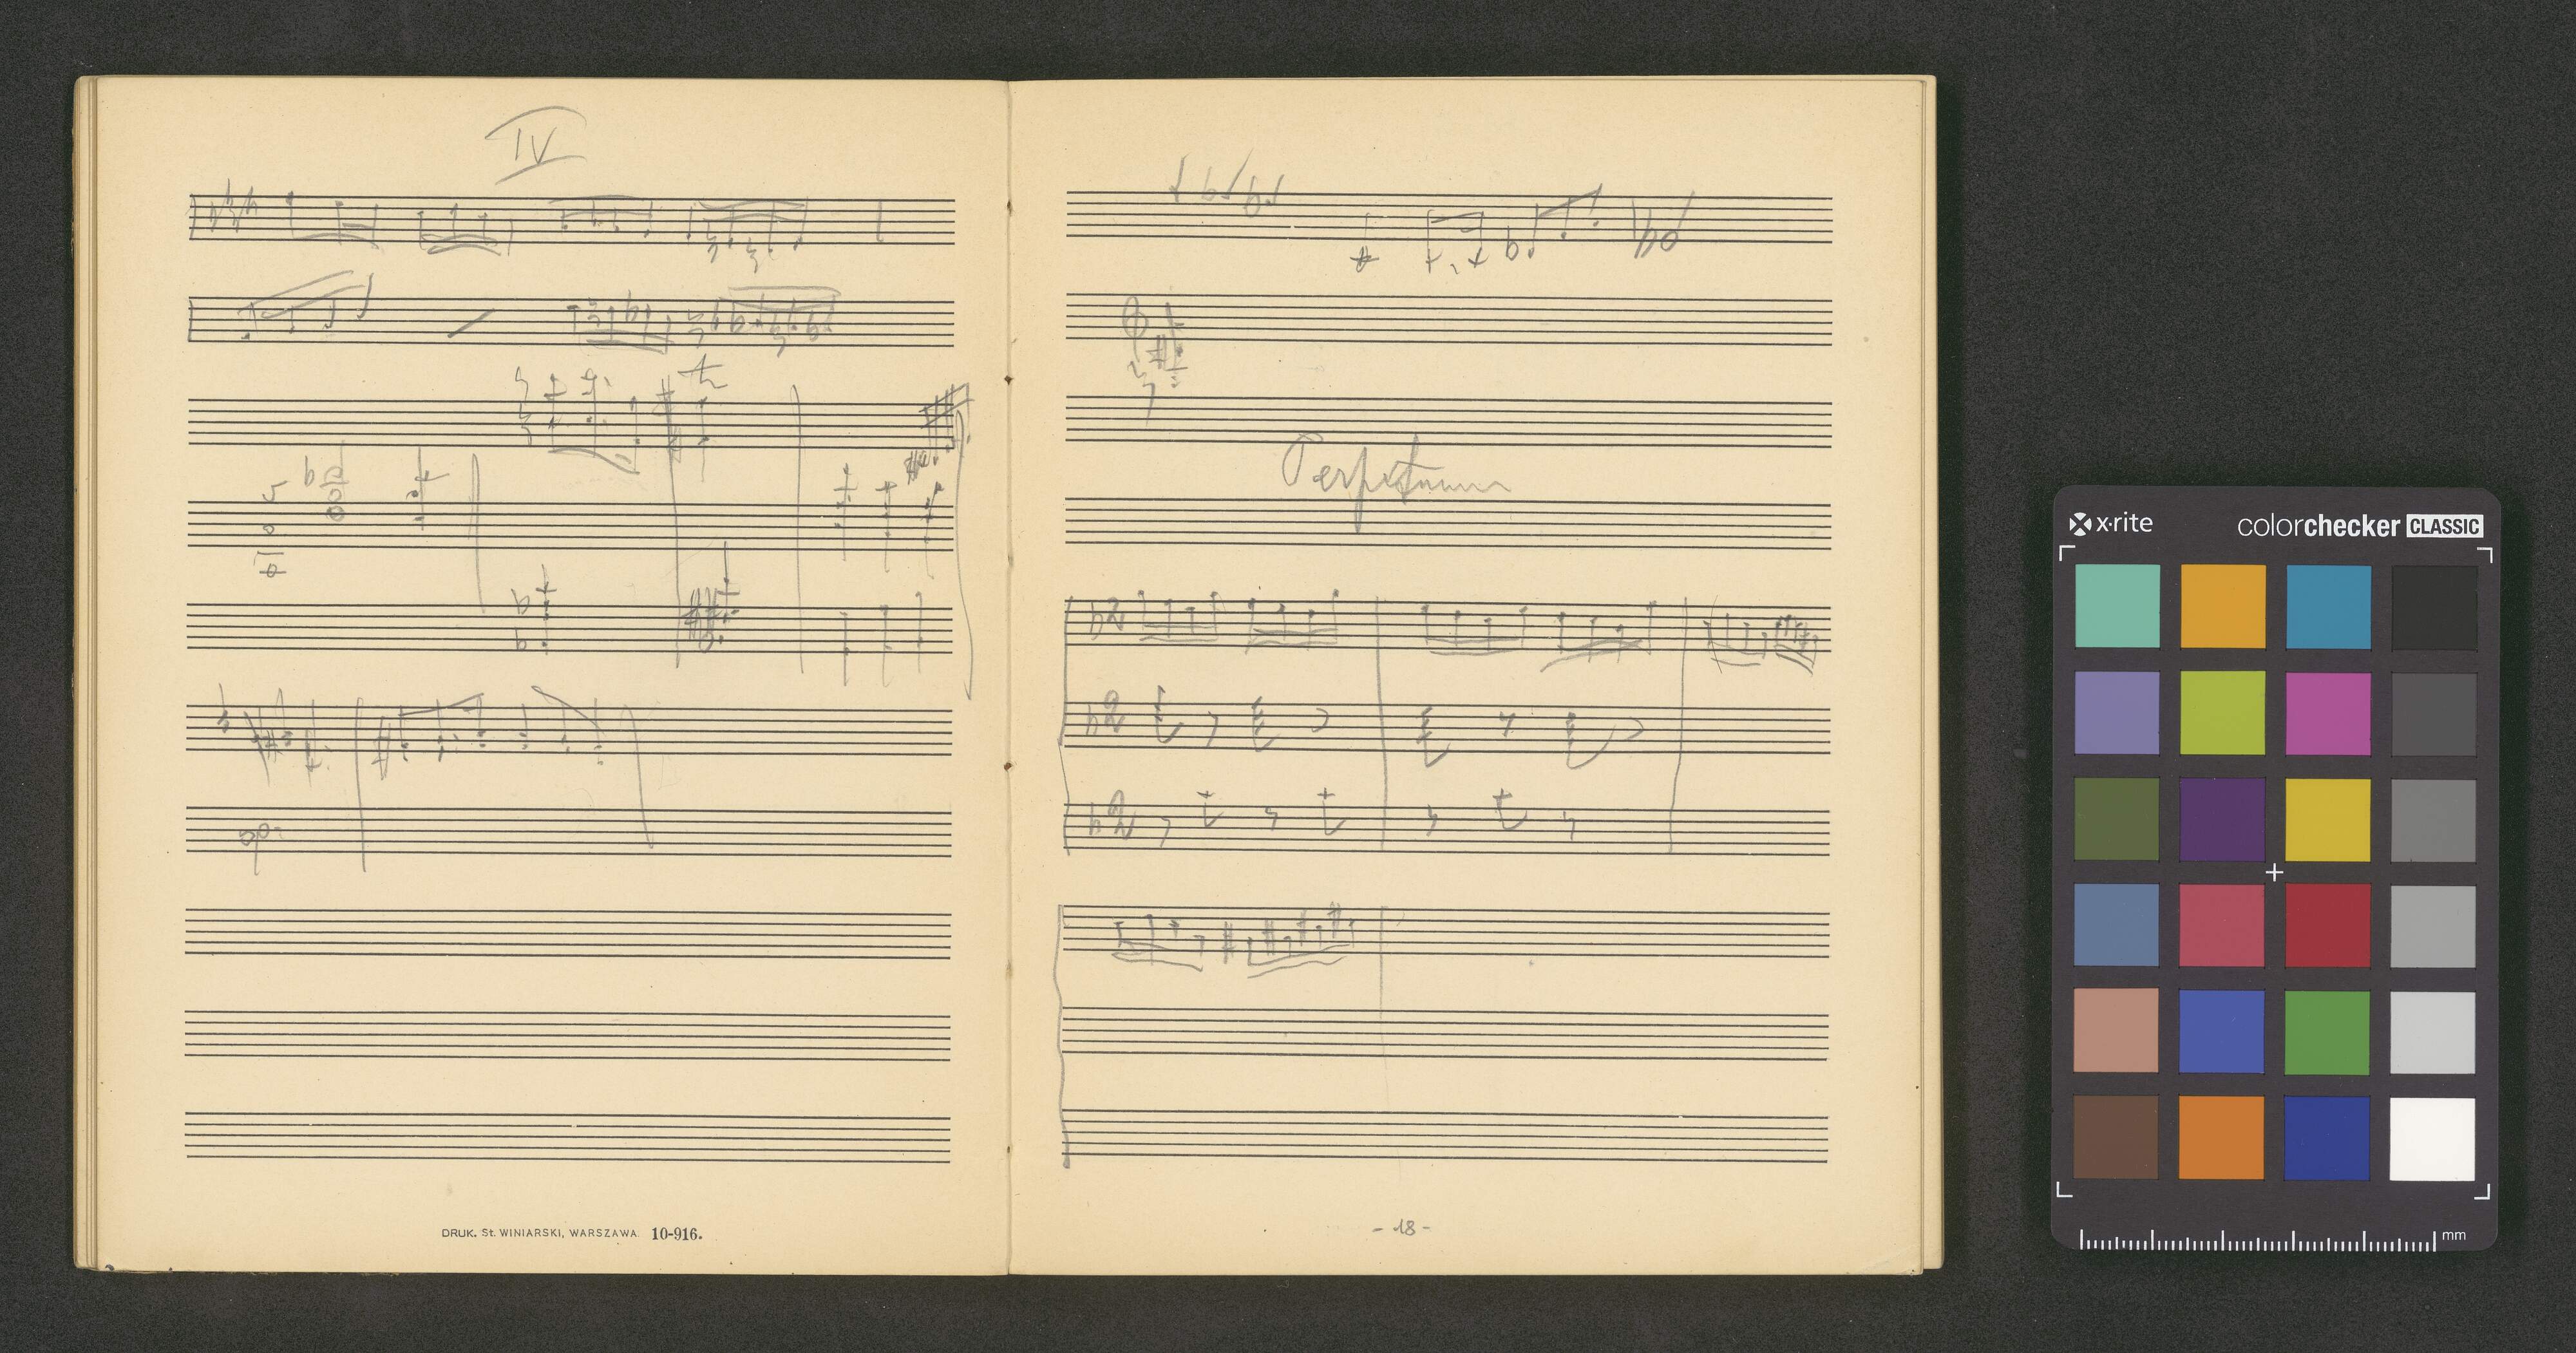 IV
DRUK. St. WINIARSKI, WARSZAWA. 10-916.
Perpetuum
- 18 -
x-rite
colorchecker CLASSIC
mm